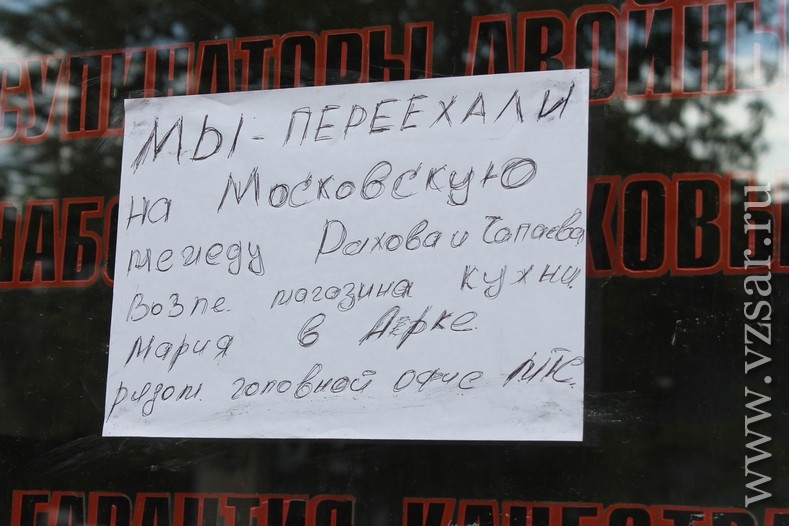 СУПИНАТОРЫ ДВОЙНЫ
МЫ - ПЕРЕЕХАЛИ
на Московскую
между Рахова и Чапаева
Возле магазина кухни
Мария в Арке.
рядом головной офис МТС.
НАБО КОВЫ
ГАРАНТИЯ КАЧЕСТВА
www.vzsar.ru